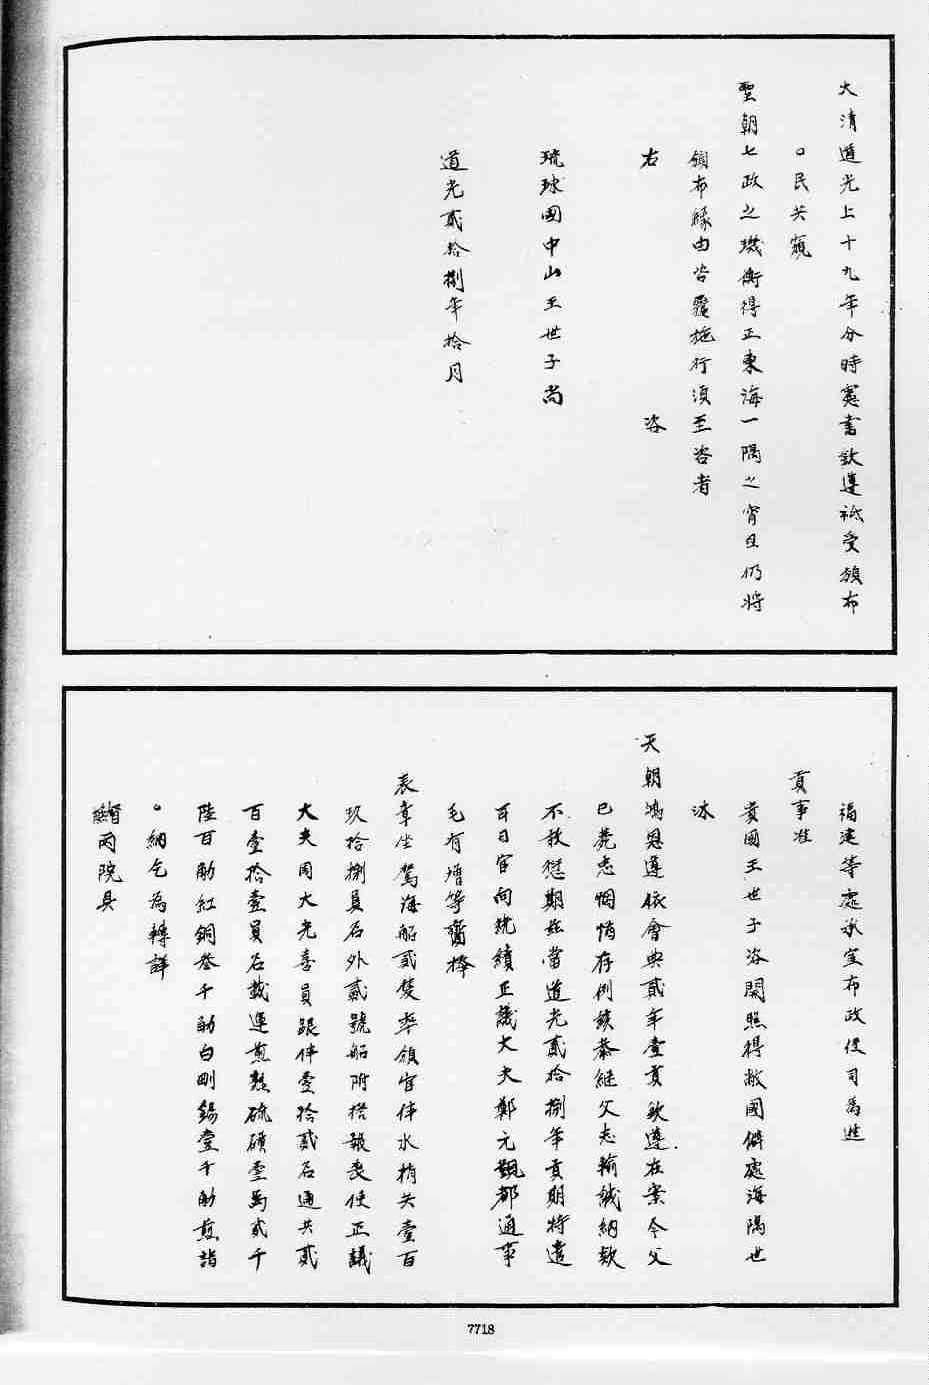 大清道光上十九年分時憲書欽遵祗受頒布
○民共窺
聖朝七政之璣衡得正東海一隅之宵旦仍將
頒布縁由咨覆施行須至咨者
右　　　　　　　　咨
琉球國中山王世子尚
道光貳拾捌年拾月
福建等處承宣布政使司為進
貢事准
貴國王世子咨開照得敝國僻處海隅世
沐
天朝鴻恩遵依會典貳年壹貢欽遵在案今父
已薨志惘悄存例鎮恭繼父志輸誠納欵
不敢愆期玆當道光貳拾捌年貢期特遣
耳目官向統績正議大夫鄭元覲都通事
毛有增等齎捧
表章坐駕海船貳隻率領官伴水梢共壹百
玖拾捌員名外貳號船附搭報喪使正議
大夫周大光壹員跟伴壹拾貳名通共貳
百壹拾壹員名載運煎熬硫磺壹萬貳千
陸百觔紅銅叁千觔白剛錫壹千觔煎詣
○納乞為轉詳
督兩院具
7718